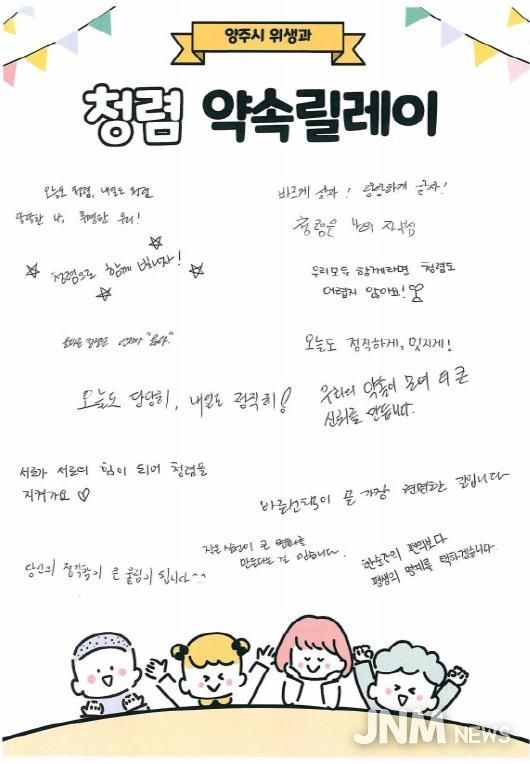 양주시 위생과
청렴 약속릴레이
오늘도 청렴, 내일도 청렴
당당한 나, 투명한 우리!
바르게 살자! 당당하게 살자!
청렴은 나의 자부심
청렴으로 함께 빛나자!
우리모두 함께라면 청렴도
어렵지 않아요!
오늘도 정직하게, 멋지게!
오늘도 당당히, 내일도 정직히!
우리의 약속이 모여 더 큰
신뢰를 만듭니다.
서로가 서로의 힘이 되어 청렴을
지켜가요 ♡
바른선택이 곧 가장 현명한 길입니다
작은 실천이 큰 변화를
만든다는 걸 믿습니다.
당신의 정직함이 큰 울림이 됩니다~^
한순간의 편의보다
평생의 명예를 택하겠습니다.
JNM NEWS